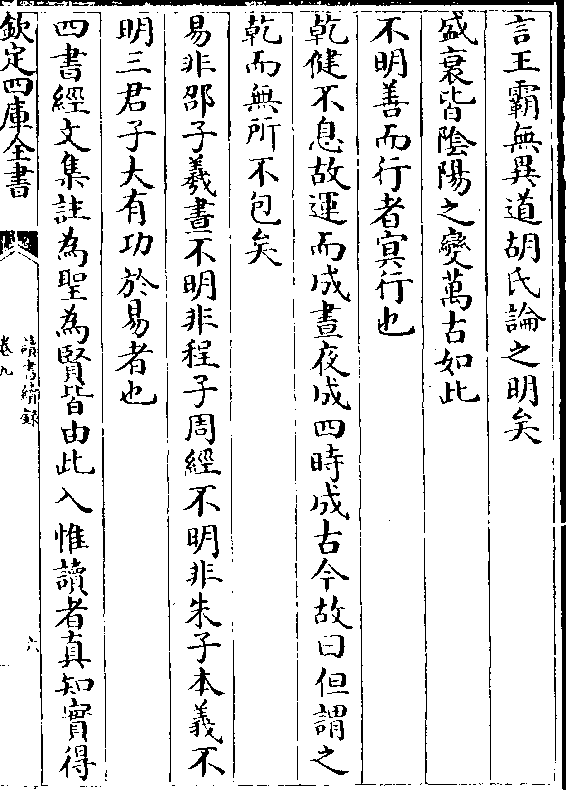 言王霸無異道胡氏論之明矣
盛衰皆隂陽之變萬古如此
不明善而行者冥行也
乾健不息故運而成晝夜成四時成古今故曰但謂之
乾而無所不包矣
易非邵子羲畫不明非程子周經不明非朱子本義不
明三君子大有功於易者也
四書經文集註為聖為賢皆由此入惟讀者真知實得
欽定四庫全書
讀書續録
卷九
六